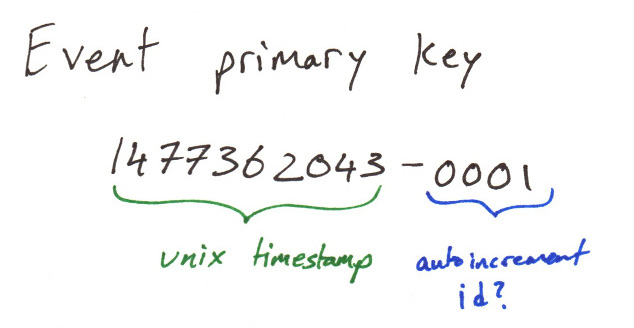 Event primary key
1477362043-0001
unix timestamp
autoincrement
id?